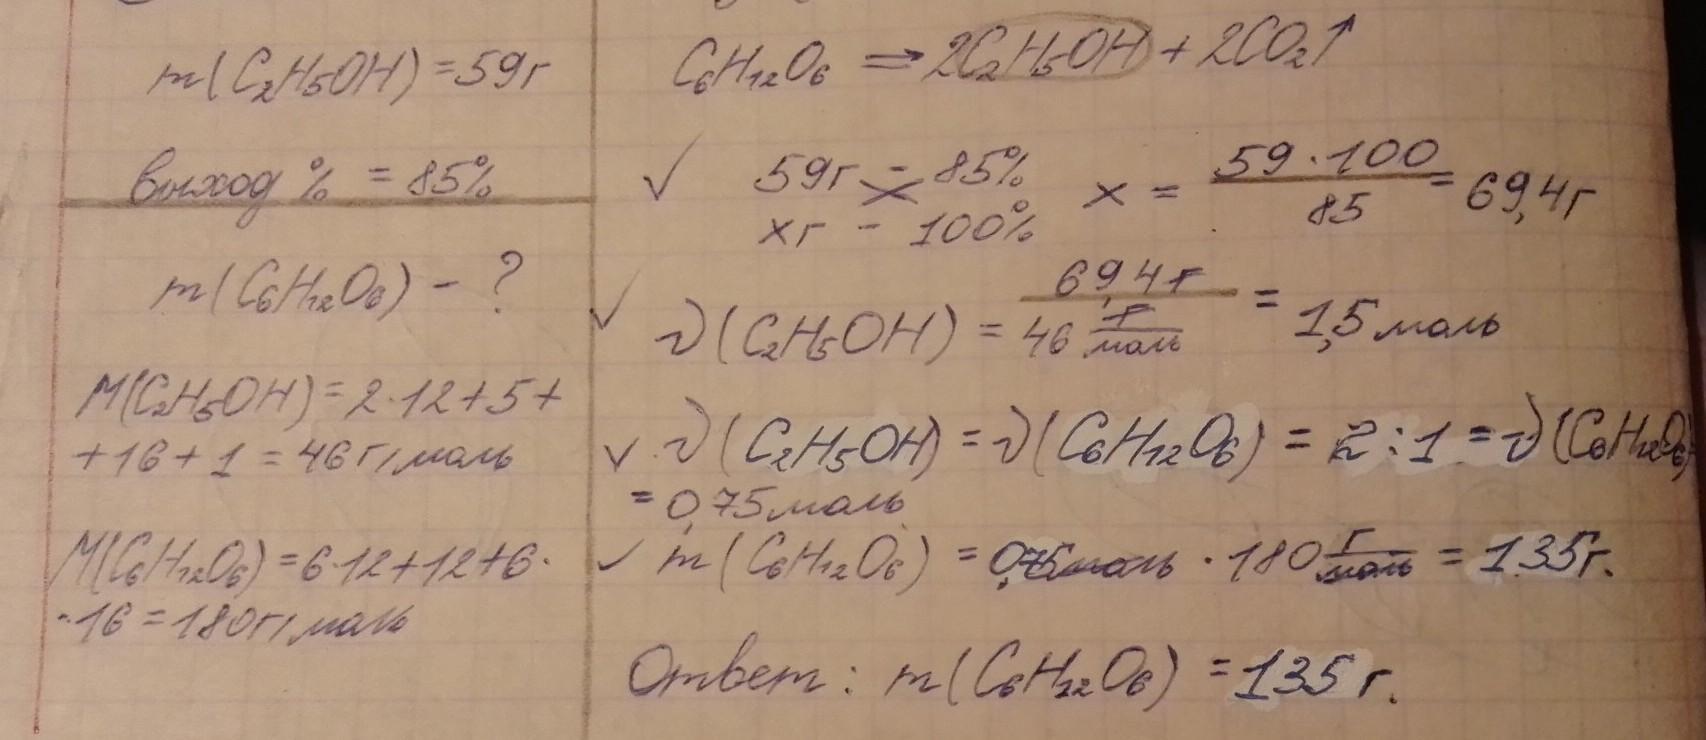 m(C₂H₅OH) = 59г
выход % = 85%
m(C₆H₁₂O₆) - ?
M(C₂H₅OH) = 2·12+5+
+16+1 = 46г/моль
M(C₆H₁₂O₆) = 6·12+12+6·
·16 = 180г/моль
C₆H₁₂O₆ ⇒ 2C₂H₅OH + 2CO₂↑
✓ 59г - 85% x = 59·100/85 = 69,4г
xг - 100%
✓ ν(C₂H₅OH) = 69,4г/46 г/моль = 1,5 моль
✓ ν(C₂H₅OH) = ν(C₆H₁₂O₆) = 2:1 = ν(C₆H₁₂O₆)
= 0,75моль
✓ m(C₆H₁₂O₆) = 0,75моль · 180 г/моль = 135г.
Ответ: m(C₆H₁₂O₆) = 135 г.